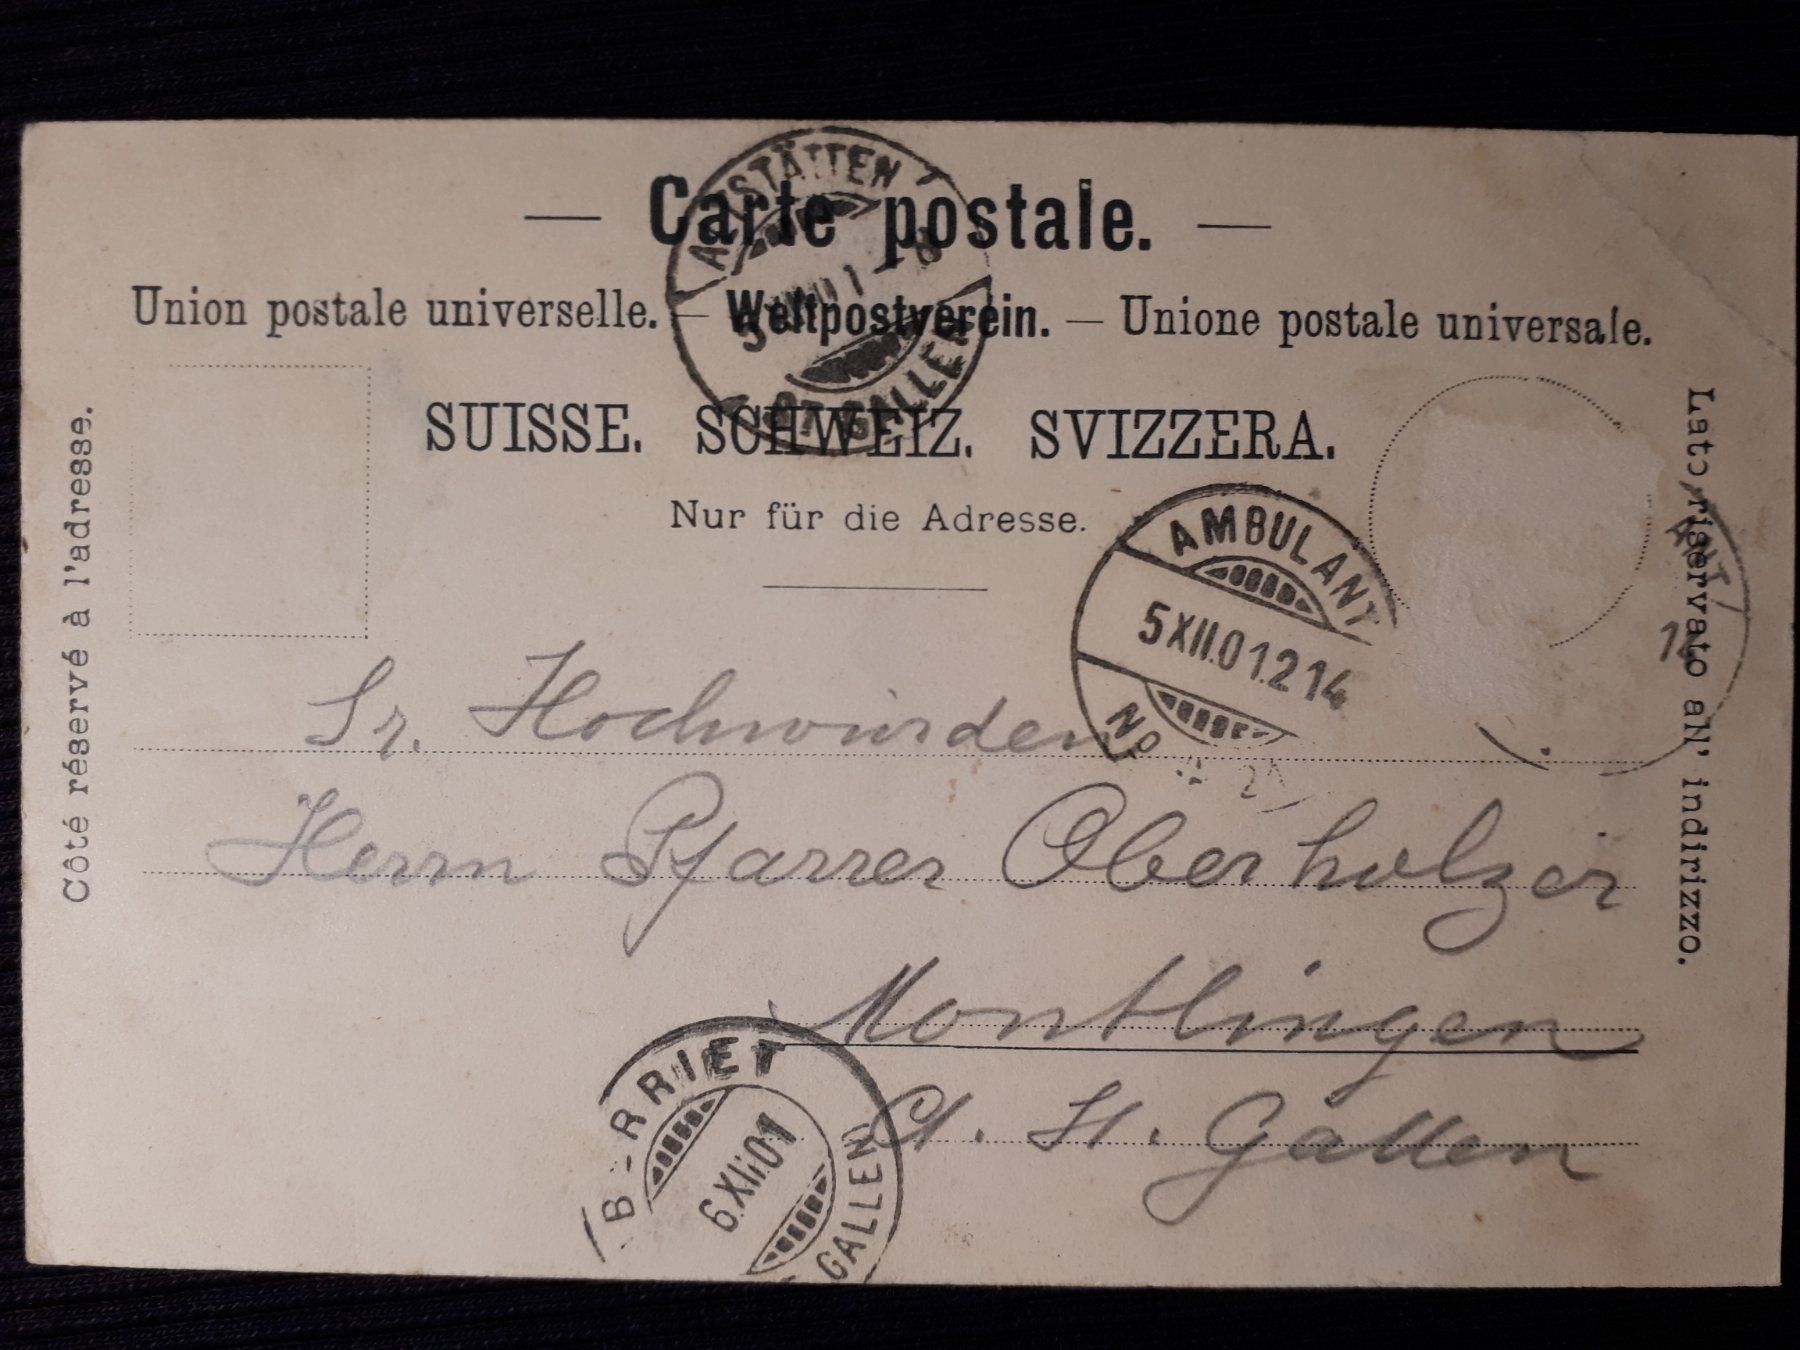 Carte postale.
Union postale universelle. — Weltpostverein. — Unione postale universale.
SUISSE. SCHWEIZ. SVIZZERA.
Nur für die Adresse.
Côté réservé à l'adresse.
Lato riservato all' indirizzo.
ALTSTÄTTEN
ST. GALLEN
AMBULANT
5.XII.01.214
No
ANT
12
Sr. Hochwürden
Herrn Pfarrer Oberholzer
Montlingen
Ct. St. Gallen
B-RRIET
6.XII.01
GALLEN